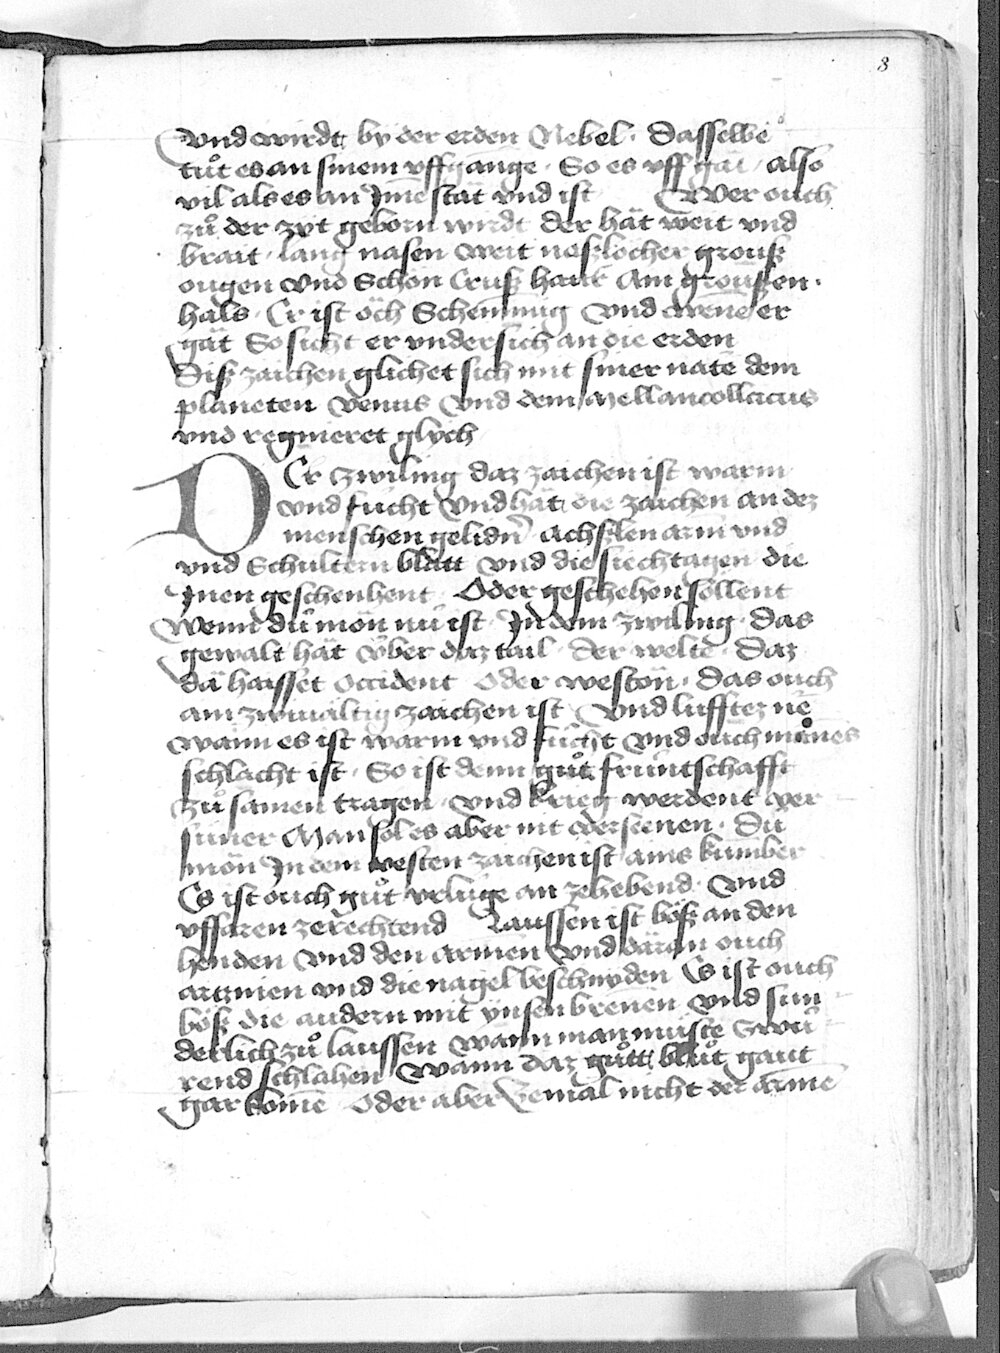 8
vnd wirdt by der erden Nebel · dasselbe
tuͦt es an sinem vffgange · So es vff gät · also
vil als es an Jme stät vnd ist Wer ouch
zuͦ der zyt geborn wirdt der hät weit vnd
brait · lang nasen weit naßlöcher grouß
ougen vnd Schön Cruß haut Am groußen ·
hals · Er ist öch Schemmig vnd wenne er
gät So sicht er vndersich an die erden
Diß zaichen glichet sich mit siner nate dem
planeten venus vnd dem Mellancollicus
vnd regnieret glych
DEr zwiling daz zaichen ist warm
vnd fücht vnd hät die zaichen an dez
menschen gelidn̄ achßlen arm vnd
vnd Schultern blätt vnd die siechtagen die
Jnen geschenhent · Oder geschehen söllent
wenn du mön nü ist · Jn dem zwiling · das
gewalt hät über daz tail · der welte · daz
dä haisset Occident Oder westön · das ouch
ain zwiualtig zaichen ist vnd lufftez
wann es ist warm vnd fücht vnd ouch
schlacht ist · So ist denn guͦt fruntschafft
zuͦ samen tragen · vnd krieg werdent ver
süner Man sol es aber nit · Dü
mön Jn dem vesten zaichen ist ains kumber
Es ist ouch guͦt vrluge an zehebend · vnd
vffaren zerechtend Laussen ist böß an den
henden vnd den armen vnd däran ouch
artznen vnd die nagel beschnyden Es ist ouch
böß die andern mit ynsen brenen vnd sun
derlich zuͦ laussen wann man muͤste zwu
rend schlahen wann daz guͦtt bluͦt gaut
gar kome Oder aber zemäl nicht der arme